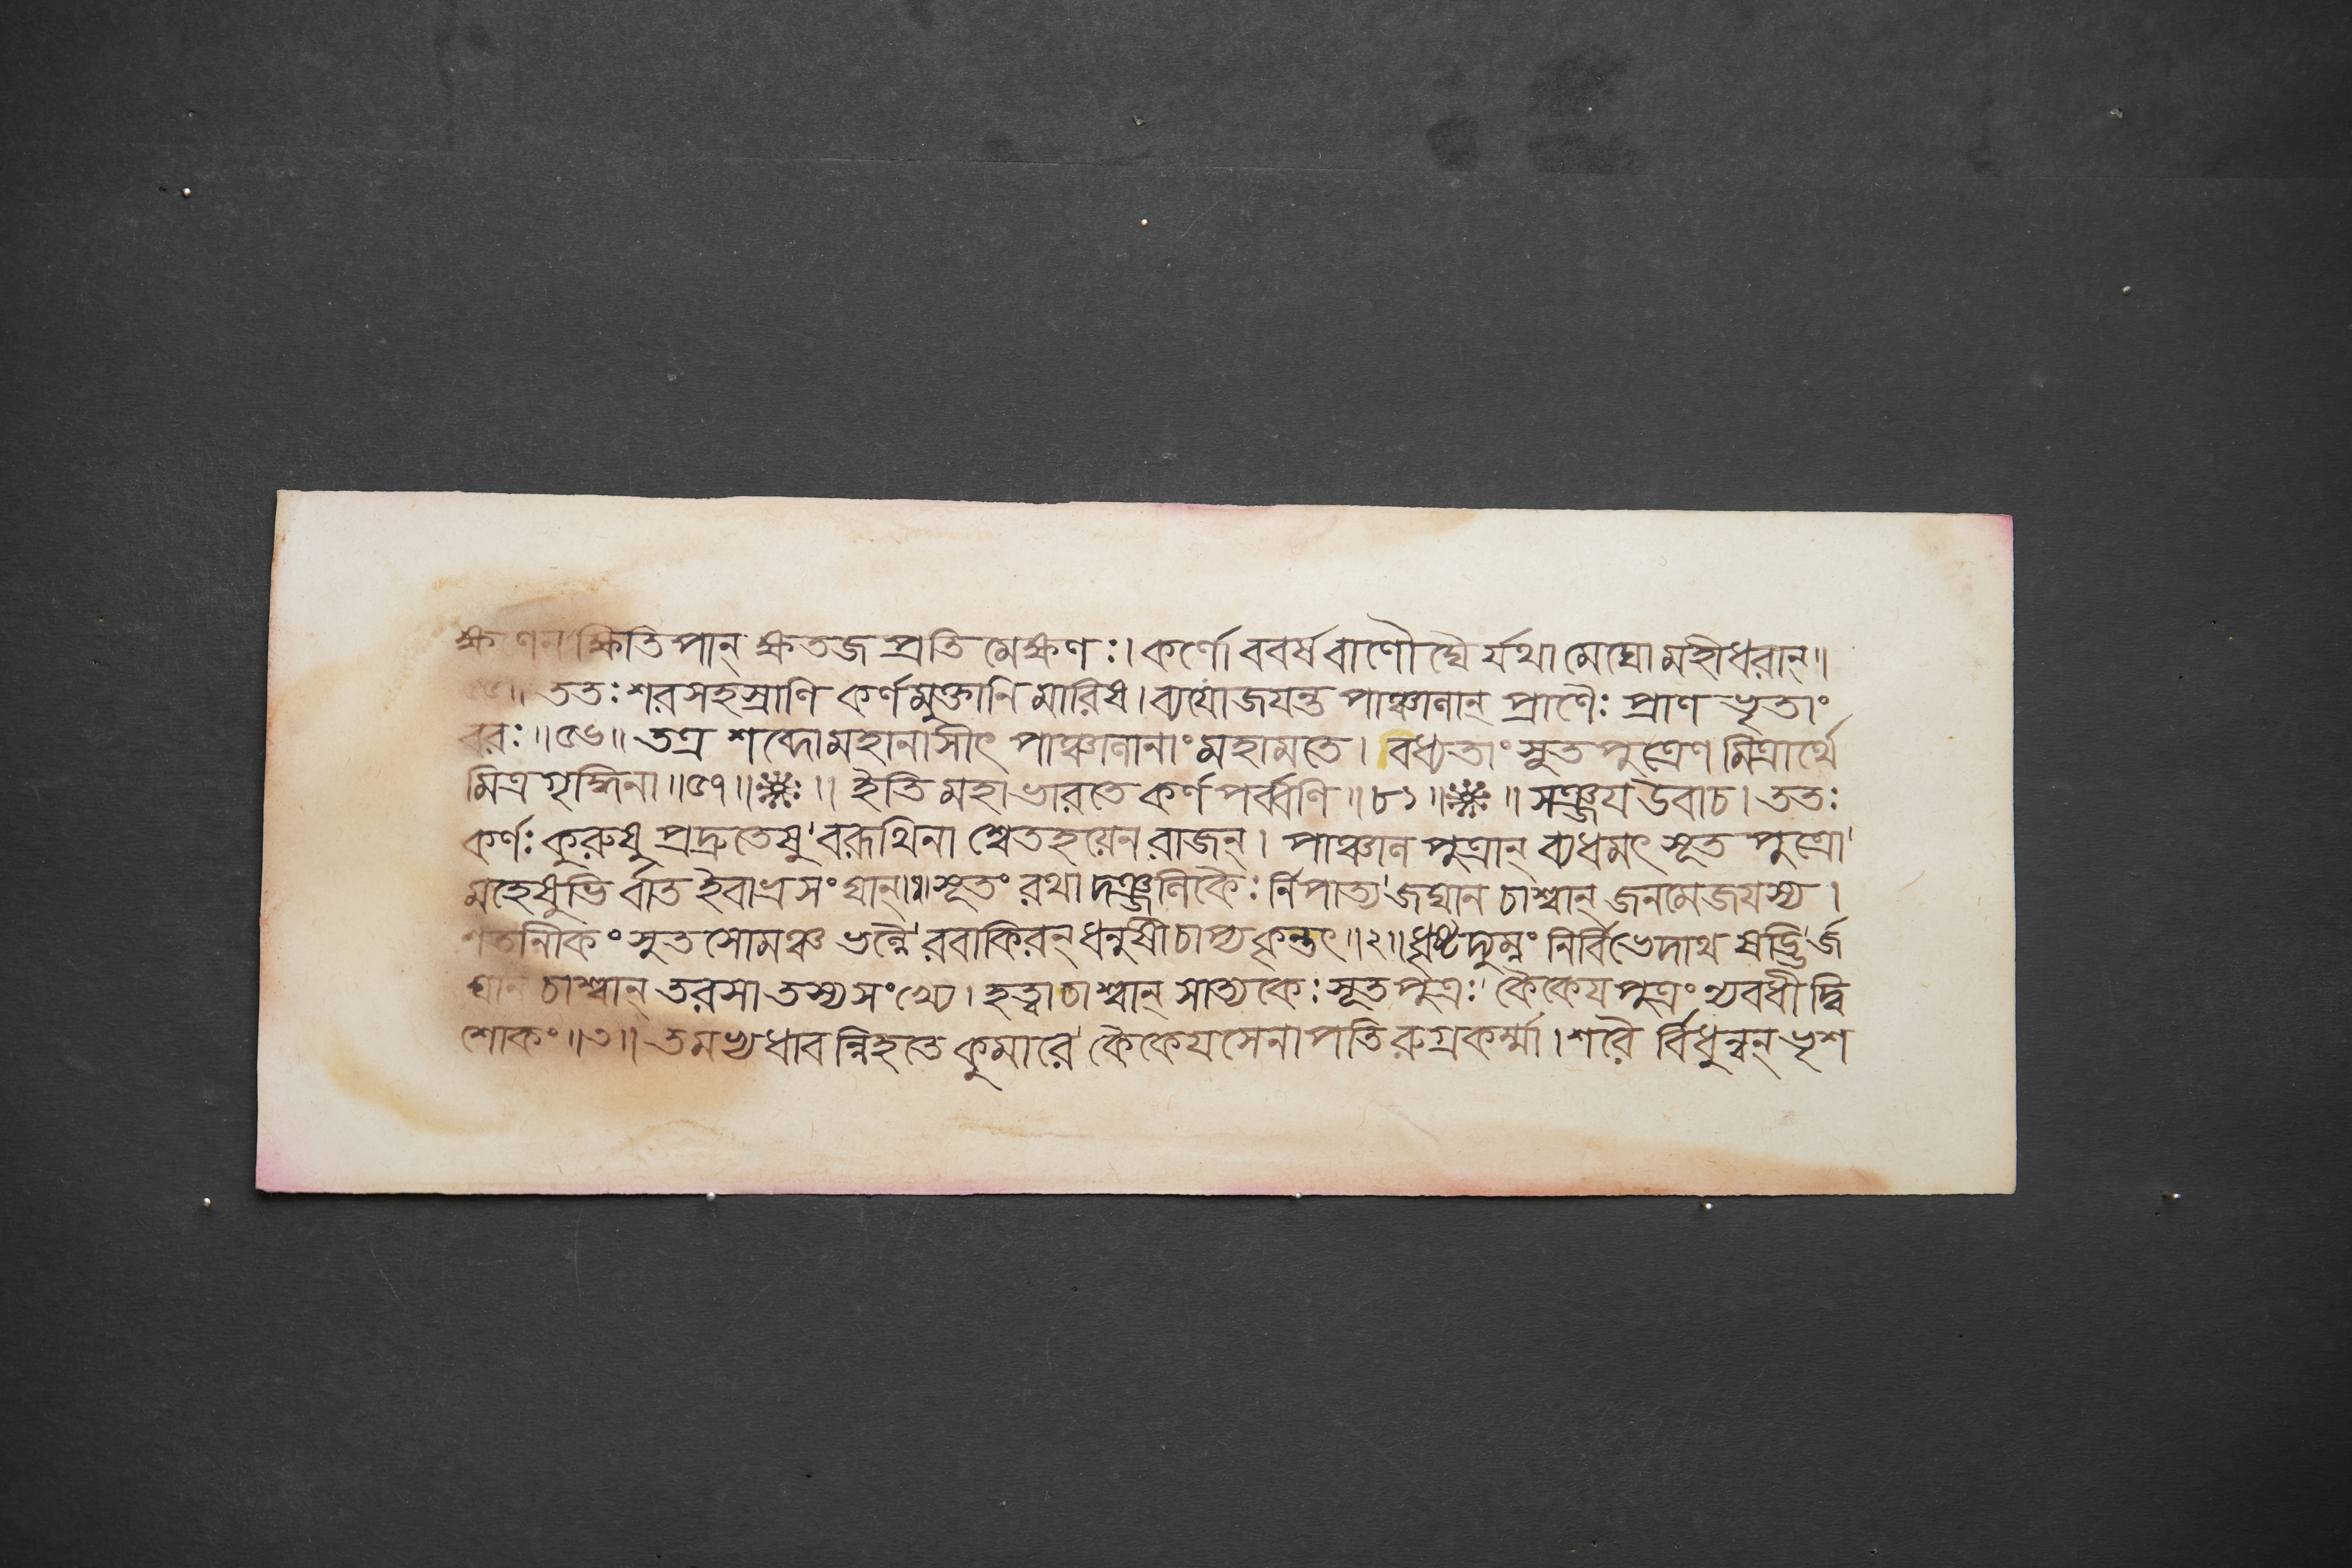 ক্ষণেন ক্ষিতিপান্ ক্ষতজ প্রতিমেক্ষণঃ। কর্ণো ববর্ষ বাণৌঘৈ র্যথা মেঘো মহীধরান্॥
৫৫॥ ততঃ শরসহস্রাণি কর্ণমুক্তানি মারিষ। ব্যযোজযন্ত পাঞ্চালান্ প্রাণৈঃ প্রাণ ভৃতাং
বরঃ॥৫৬॥ তত্র শব্দো মহানাসীৎ পাঞ্চালানাং মহামতে। বধ্যতাং সুত পুত্রেণ মিত্রার্থে
মিত্রগৃদ্ধিনা॥৫৭॥ ॥ ইতি মহাভারতে কর্ণপর্ব্বণি॥৮১॥ ॥ সঞ্জয উবাচ। ততঃ
কর্ণঃ কুরুষু প্রদ্রুতেষু' বরূথিনা শ্বেতহয়েন রাজন্। পাঞ্চাল পুত্রান্ ব্যধমৎ সূত পুত্রো'
মহেষুভি র্বাত ইবাভ্রসংঘান্॥১॥ সূতং রথা দঞ্জলিকৈঃ র্নিপাত্য' জঘান চাশ্বান্ জনমেজযস্য।
শতানীকং সুতসোমঞ্চ ভল্লৈ' রবাকিরন্ ধনুষী চাপ্যকৃন্তৎ॥২॥ ধৃষ্টদ্যুম্নং নির্বিভেদাথ ষড্ভি'র্জ
ঘান চাশ্বান্ তরসা তস্য সংখ্যে। হত্বা চাশ্বান্ সাত্যকেঃ সূতপুত্রঃ' কৈকেয পুত্রং ন্যবধী দ্বি
শোকং॥৩॥ তমভ্যধাবন্নিহতে কুমারে' কৈকেয সেনাপতি রুগ্রকর্ম্মা। শরৈ র্বিধুন্বন্ ভৃশ